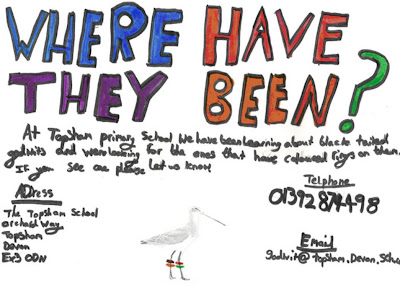 WHERE HAVE
THEY BEEN?
At Topsham primary School We have been learning about black tailed
godwits and were looking for the ones that have coloured rings on them.
If you see one please let us know
ADress
The Topsham School
orchard Way
Topsham
Devon
Ex3 0DN
Telphone
01392 874498
Email
godwit@topsham.Devon.Sch